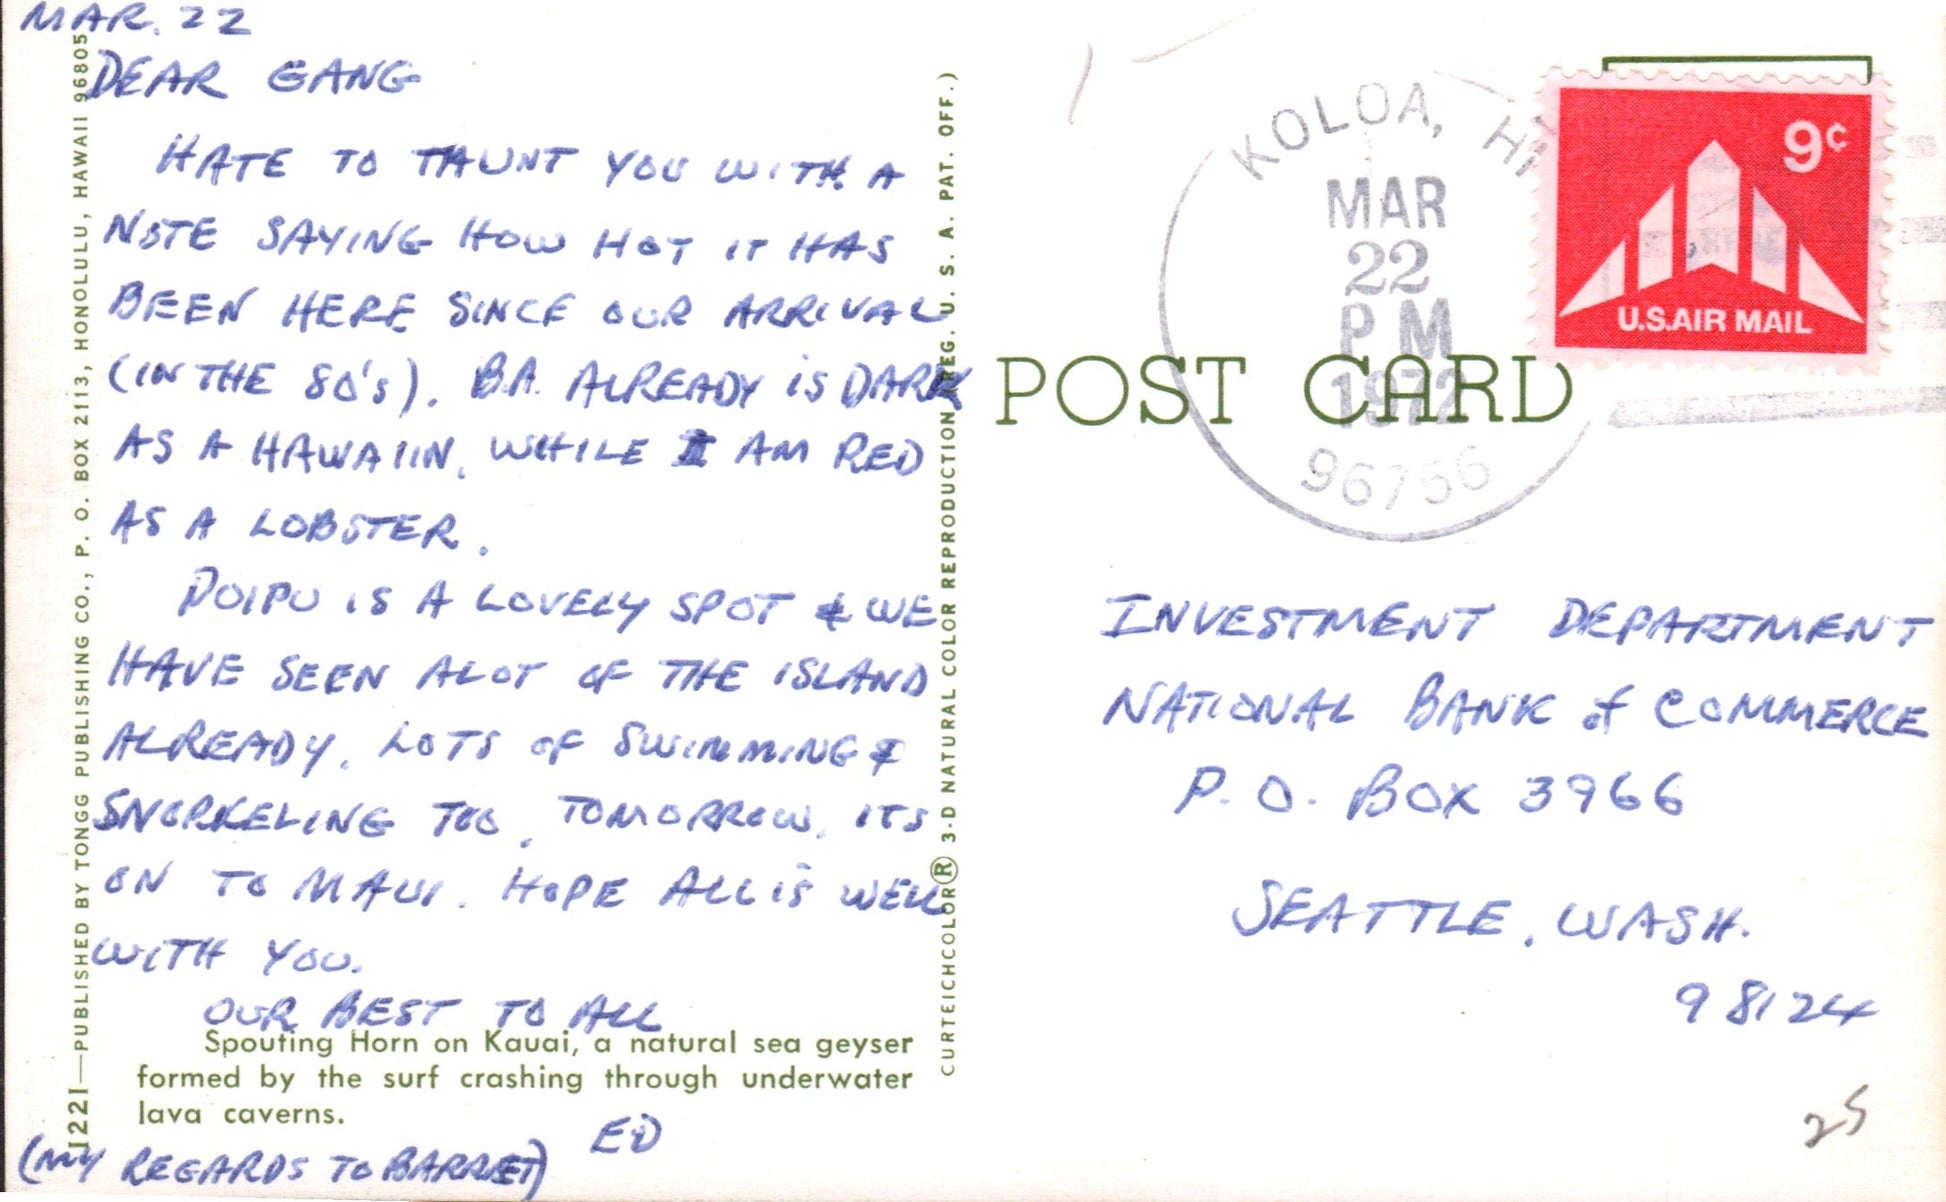 MAR. 22
DEAR GANG
HATE TO TAUNT YOU WITH A
NOTE SAYING HOW HOT IT HAS
BEEN HERE SINCE OUR ARRIVAL
(IN THE 80's). B.A. ALREADY IS DARK
AS A HAWAIIN, WHILE I AM RED
AS A LOBSTER.
POIPU IS A LOVELY SPOT & WE
HAVE SEEN ALOT OF THE ISLAND
ALREADY. LOTS OF SWIMMING &
SNORKELING TOO. TOMORROW, ITS
ON TO MAUI. HOPE ALL IS WELL
WITH YOU.
OUR BEST TO ALL
Spouting Horn on Kauai, a natural sea geyser
formed by the surf crashing through underwater
lava caverns.
ED
(MY REGARDS TO BARRET)
1221—PUBLISHED BY TONGG PUBLISHING CO., P. O. BOX 2113, HONOLULU, HAWAII 96805
CURTEICHCOLOR® 3-D NATURAL COLOR REPRODUCTION (REG. U. S. A. PAT. OFF.)
POST CARD
KOLOA, HI
MAR
22
PM
1972
96756
9¢
U.S. AIR MAIL
INVESTMENT DEPARTMENT
NATIONAL BANK of COMMERCE
P. O. BOX 3966
SEATTLE, WASH.
98124
25